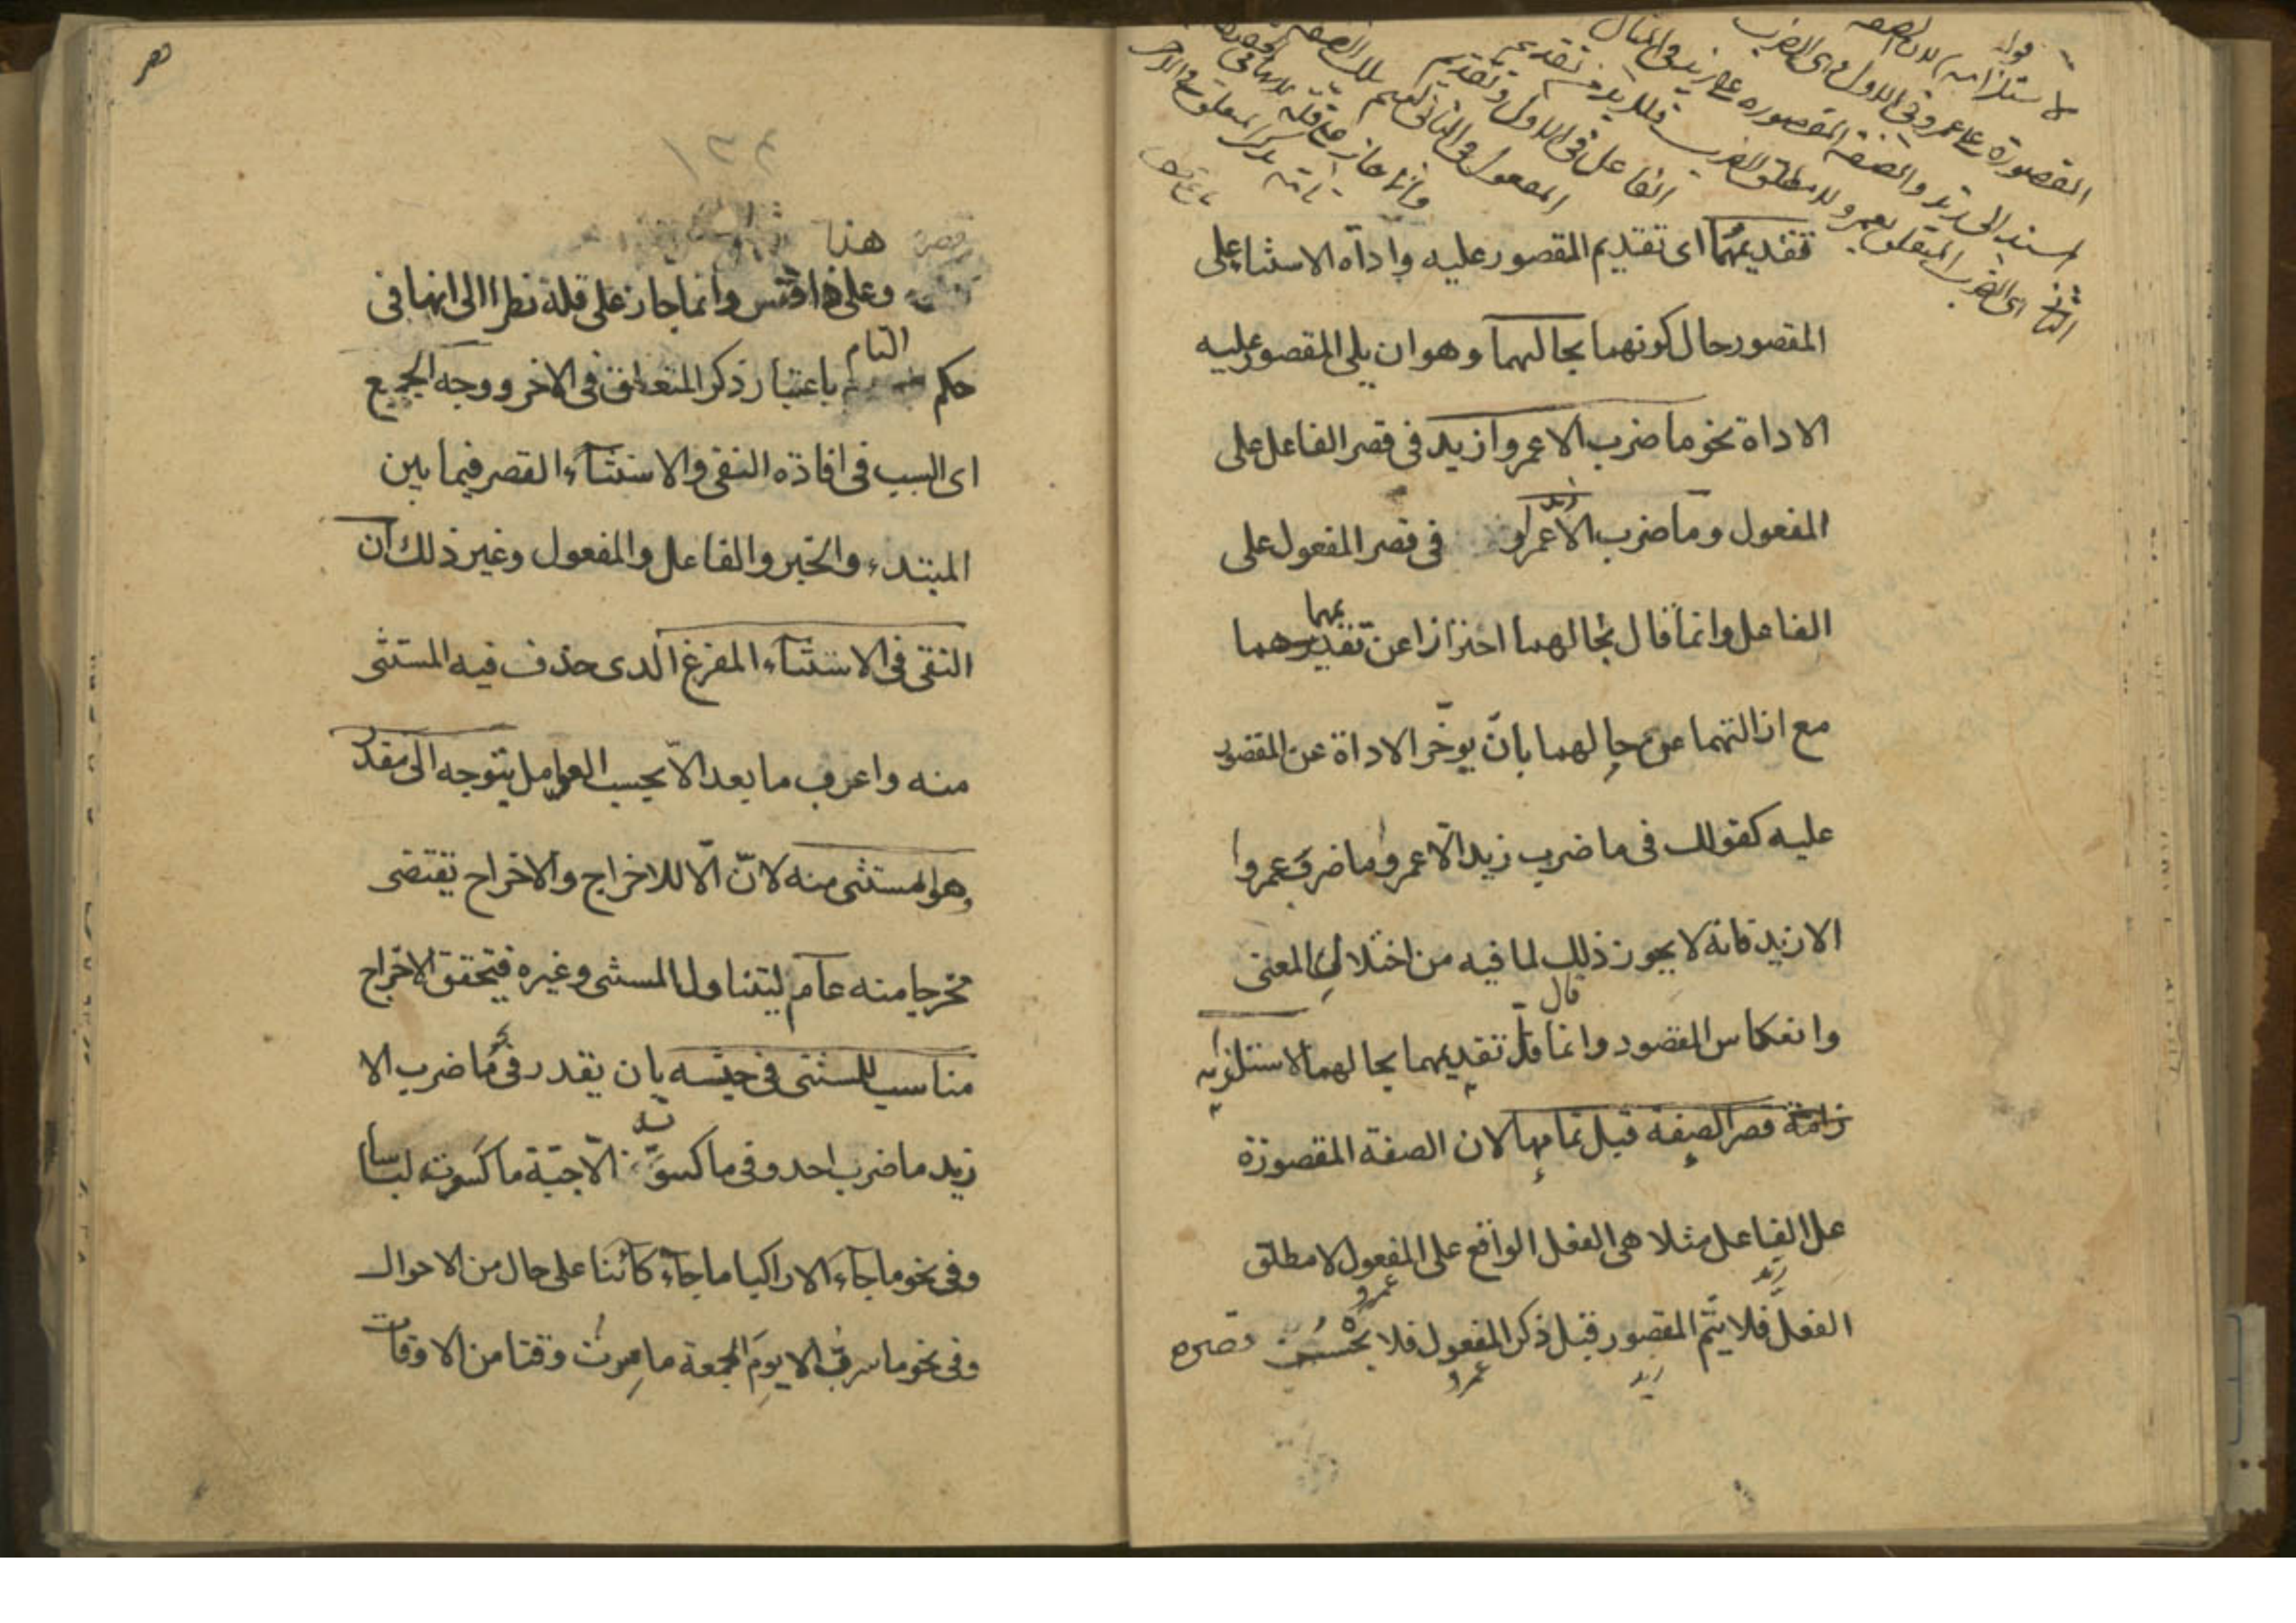 قوله
لاستلزامه لان الصفة
المقصورة على عمرو فى الاول هى الضرب
المسند الى زيد والصفة المقصورة على زيد فى المثال
الثانى هى الضرب المتعلق بعمرو لا مطلق الضرب فلا بد من تقديم
الفاعل فى الاول وتقديم
المفعول فى الثانى ليتم تلك الصفة
وانما جاز على قلة لانها فى
تامة بذكر المتعلق فى الاخر
فتقديمهما اى تقديم المقصور عليه واداة الاستثناء على
المقصور حال كونهما بحالهما وهو ان يلى المقصور عليه
الاداة نحو ما ضرب الا عمروا زيد فى قصر الفاعل على
المفعول وما ضرب الا زيد عمروا فى قصر المفعول على
الفاعل وانما قال بحالهما احترازا عن تقديمهما
مع ازالتهما عن حالهما بان يوخّر الاداة عن المقصور
عليه كقولك فى ما ضرب زيد الّا عمروا ما ضرب عمروا
الا زيد فانه لا يجوز ذلك لما فيه من اختلال المعنى
وانعكاس المقصود وانما قال قلّ تقديمهما بحالهما لاستلزامه
زامة قصر الصفة قبل تمامها لان الصفة المقصورة
على الفاعل مثلا هى الفعل الواقع على المفعول لا مطلق
زيد
الفعل فلا يتم المقصور قبل ذكر المفعول فلا يحسن قصره
عمرو
زيد
عمرو
هذا
وعلى هذا فقس وانما جاز على قلة نظرا الى انها فى
حكم التام باعتبار ذكر المتعلق فى الاخر ووجه الجميع
اى السبب فى افادة النفى والاستثناء القصر فيما بين
المبتدء والخبر والفاعل والمفعول وغير ذلك ان
النفى فى الاستثناء المفرغ الذى حذف فيه المستثنى
منه واعرب ما بعد الّا بحسب العوامل يتوجه الى مقدر
وهو المستثنى منه لانّ الّا للاخراج والاخراج يقتضى
مخرجا منه عام ليتناول المستثنى وغيره فيتحقق الاخراج
مناسب للمستثنى فى جنسه بان يقدر فى نحو ما ضرب الا
زيد ما ضرب احد وفى ما كسوته الّا جبّة ما كسوته لباسا
وفى نحو ما جاء الا راكبا ما جاء كائنا على حال من الاحوال
وفى نحو ما سرت الا يوم الجمعة ما سرت وقتا من الاوقات